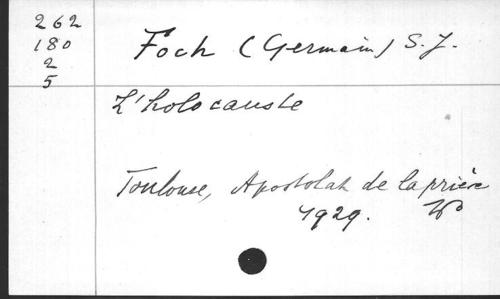 262
180
2
5
Foch (Germain) S.J.
L'holocauste
Toulouse, Apostolat de la prière
1929.